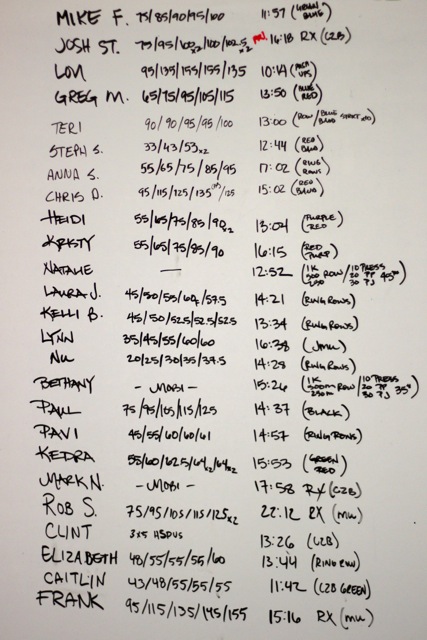 MIKE F. 75/85/90/95/100 11:57 (GREEN BLUE)
JOSH ST. 75/95/100x2/100/102.5x2 PR 16:18 RX (C2B)
LON 95/135/155/155/135 10:14
GREG M. 65/75/95/105/115 13:50 (BLUE RED)
TERI 90/90/95/95/100 13:00 (ROW/BLUE STRICT
STEPH S. 33/43/53x2 12:44 (RED BLUE)
ANNA S. 55/65/75/85/95 17:02 (RING ROWS)
CHRIS D. 95/115/125/135/125 15:02 (RED BLUE)
HEIDI 55/65/75/85/90x2 13:04 (PURPLE RED)
KRISTY 55/65/75/85/90 16:15 (RED PURP)
NATALIE — 12:52 (1K 500 ROW/10 PRESS 20 PP 30 PJ 45#)
LAURA J. 45/50/55/60/57.5 14:21 (RING ROWS)
KELLI B. 45/50/52.5/52.5/52.5 13:34 (RING ROWS)
LYNN 35/45/55/60/60 16:38 (JMU)
NU 20/25/30/35/37.5 14:28 (RING ROWS)
BETHANY - MOBI - 15:26 (1K 500M ROW/10 PRESS 250M 20 PP 30 PJ 35#)
PAUL 75/95/105/115/125 14:37 (BLACK)
PAVI 45/55/60/60/61 14:57 (RING ROWS)
KEDRA 55/60/62.5/64x2/64x2 15:53 (GREEN RED)
MARK N. - MOBI - 17:58 RX (C2B)
ROB S. 75/95/105/115/125x2 22:12 RX (MU)
CLINT 3x5 HSPUS 13:26 (C2B)
ELIZABETH 48/55/55/55/60 13:44 (RING ROW)
CAITLIN 43/48/55/55/55 11:42 (C2B GREEN)
FRANK 95/115/135/145/155 15:16 RX (MU)